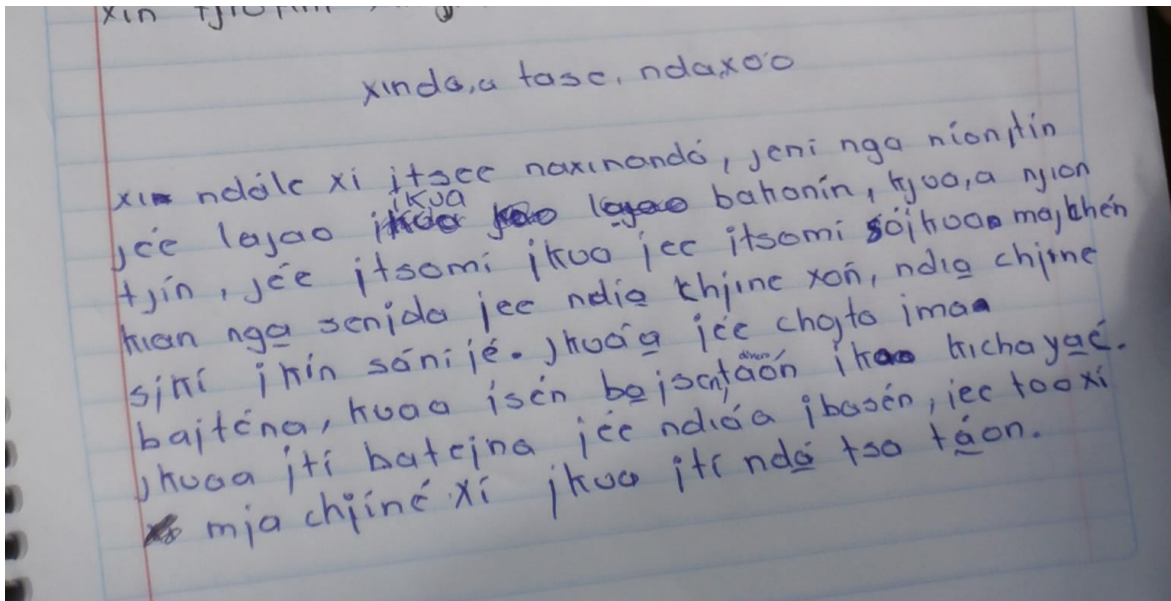 xin
xinda,a tase, ndaxo'o
xi ndále xi jtsee naxinandá, jeni nga nionjtín
jée lajao ikua bahonín, kjoa,a njion
tjín, jée jtsomí jkuo jee itsomi sójkoa majchén
kian nga senjda jee ndia chjine xoń, ndia chjine
sjkí jkín sánijé. jkuáa jée chajto imaa
bajténa, kuaa isén bajsentaón ikao kichayaé.
jkuaa jtí batejna jée ndiáa jbasén, jee tooxí
mja chjíné xí jkua jtí ndá tso táon.